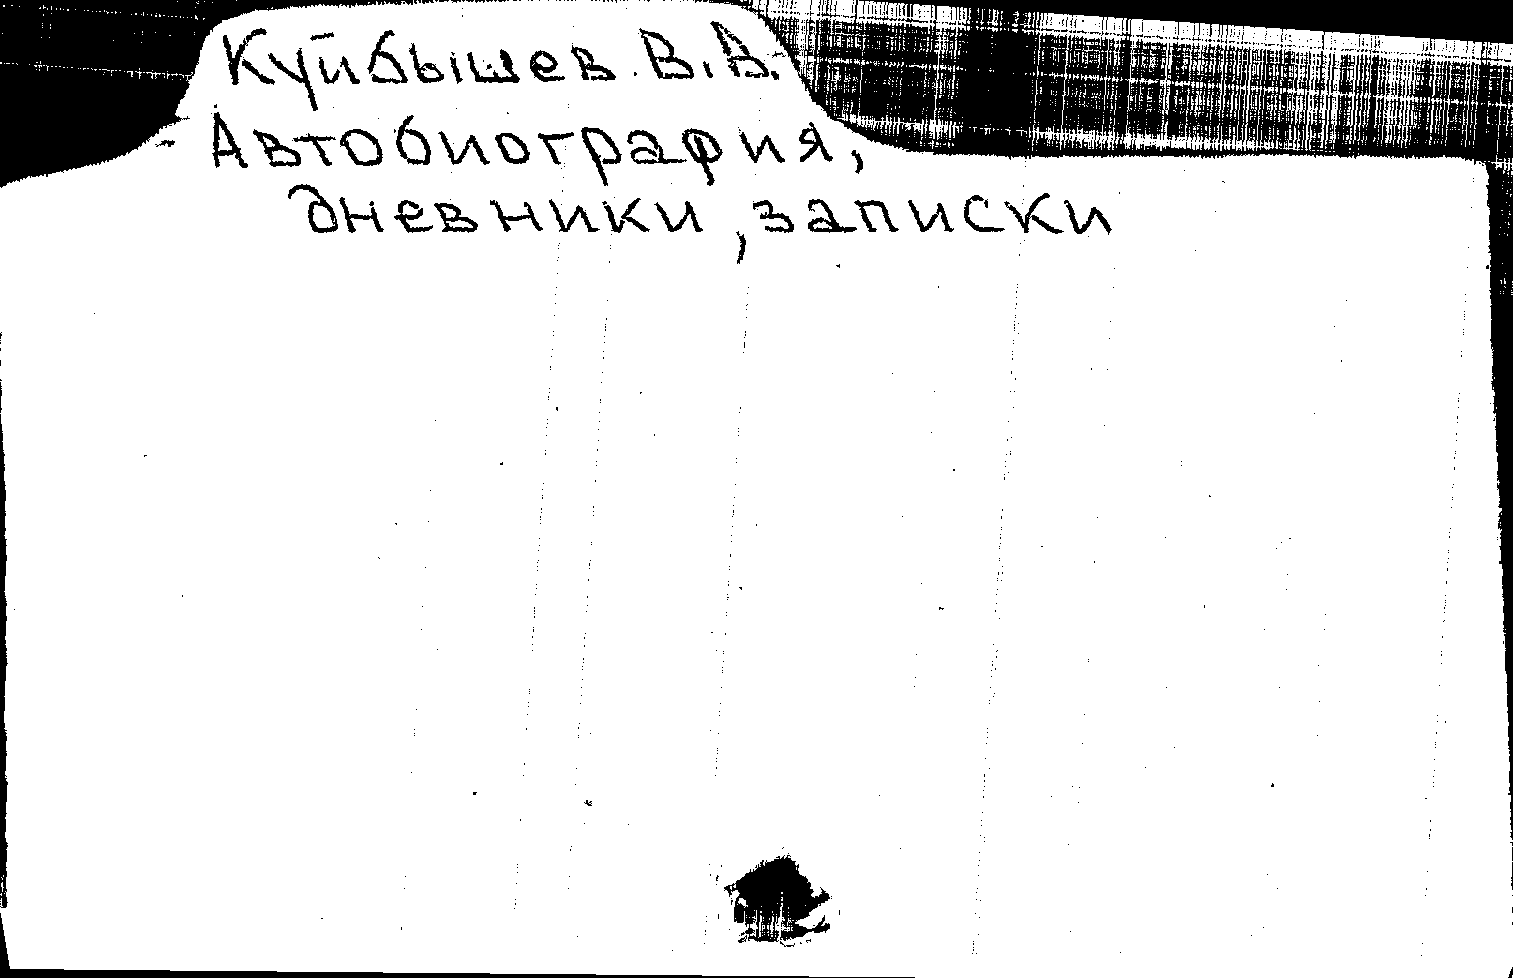 Куйбышев В.В.
Автобиография,
дневники, записки